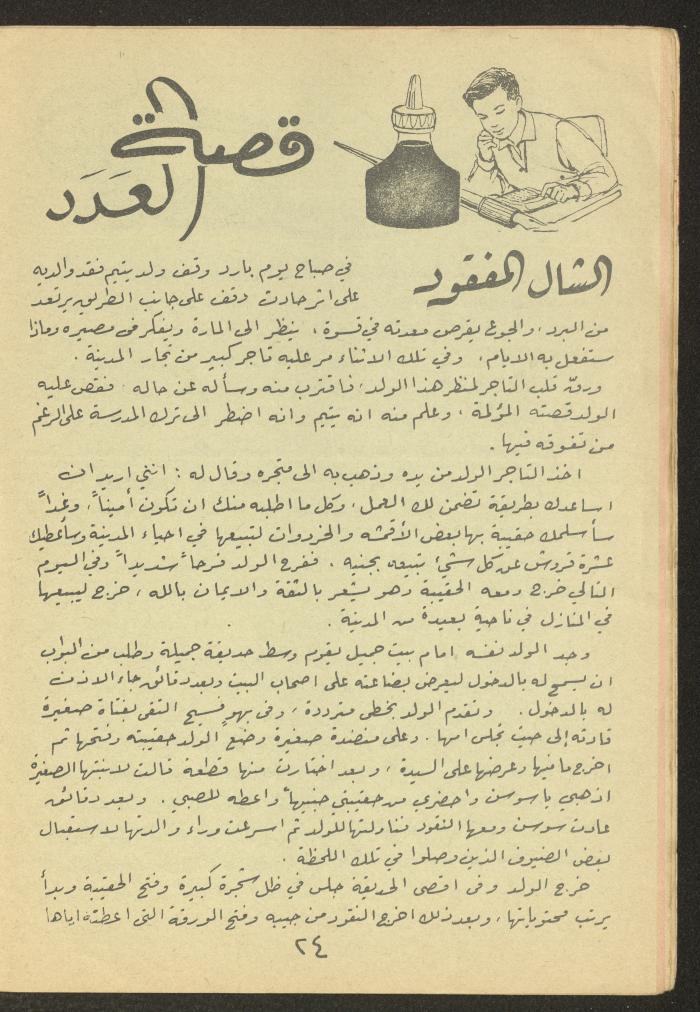 قصة
العدد
الشال المفقود
في صباح يوم بارد وقف ولد يتيم فقد والديه
على اثر حادث وقف على جانب الطريق يرتعد
من البرد، والجوع يقرص معدته في قسوة، ينظر الى المارة ويفكر في مصيره وماذا
ستفعل به الايام، وفي تلك الاثناء مر عليه تاجر كبير من تجار المدينة.
ورقّ قلب التاجر لمنظر هذا الولد، فاقترب منه وسأله عن حاله، فقص عليه
الولد قصته المؤلمة، وعلم منه انه يتيم وانه اضطر الى ترك المدرسة على الرغم
من تفوقه فيها.
اخذ التاجر الولد من يده وذهب به الى متجره وقال له: انني اريد ان
اساعدك بطريقة تضمن لك العمل، وكل ما اطلبه منك ان تكون أميناً، وغداً
سأسلمك حقيبة بها بعض الأقمشه والخردوات لتبيعها في احياء المدينة وسأعطيك
عشرة قروش عن كل شيء تبيعه بجنيه. ففرح الولد فرحاً شديداً وفي اليوم
التالي خرج ومعه الحقيبة وهو يشعر بالثقة والايمان بالله، خرج ليبيعها
في المنازل في ناحية بعيدة من المدينة.
وجد الولد نفسه امام بيت جميل يقوم وسط حديقة جميلة وطلب من البواب
ان يسمح له بالدخول ليعرض بضاعته على اصحاب البيت وبعد دقائق جاء الاذن
له بالدخول. وتقدم الولد بخطى مترددة، وفي بهو فسيح التقى بفتاة صغيرة
قادته إلى حيث تجلس امها. وعلى منضدة صغيرة وضع الولد حقيبته وفتحها ثم
اخرج ما فيها وعرضها على السيدة، وبعد اختارت منها قطعة قالت لابنتها الصغيرة
اذهبي يا سوسن واحضري من حقيبتي جنيهاً واعطه للصبي. وبعد دقائق
عادت سوسن ومعها النقود فناولتها للولد ثم اسرعت وراء والدتها لاستقبال
بعض الضيوف الذين وصلوا في تلك اللحظة.
خرج الولد وفي اقصى الحديقة جلس في ظل شجرة كبيرة وفتح الحقيبة وبدأ
يرتب محتوياتها، وبعد ذلك اخرج النقود من جيبه وفتح الورقة التي اعطته اياها
٢٤